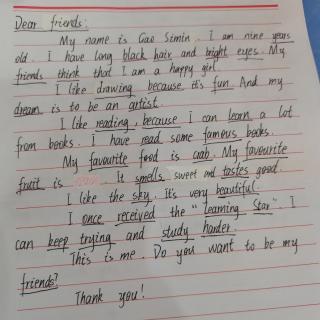 Dear friends:
My name is Gae Simin. I am nine years
old. I have long black hair and bright eyes. My
friends think that I am a happy girl.
I like drawing because it's fun. And my
dream is to be an artist.
I like reading, because I can learn a lot
from books. I have read some famous books.
My favourite food is crab. My favourite
fruit is . It smells sweet and tastes good.
I like the sky. It's very beautiful.
I once received the "Learning Star". I
can keep trying and study harder.
This is me. Do you want to be my
friends?
Thank you!